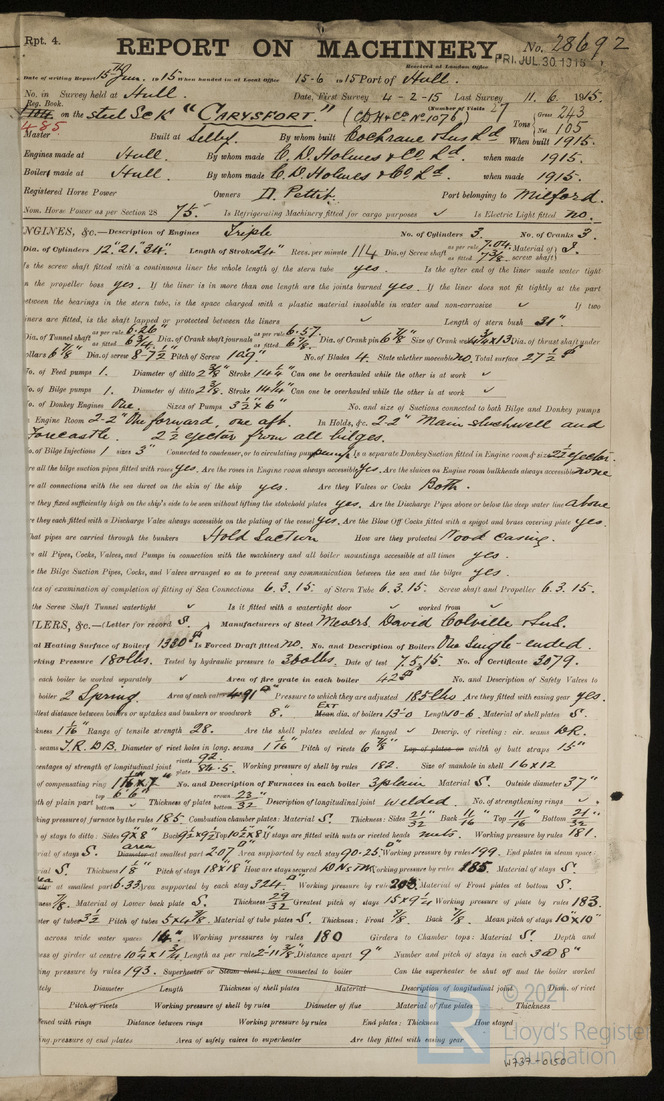 Rpt. 4.
REPORT ON MACHINERY.
No. 28692
Received at London Office
FRI. JUL. 30. 1915
Date of writing Report 15th Jun. 1915 When handed in at Local Office 15-6 1915 Port of Hull.
No. in Survey held at Hull. Date, First Survey 4-2-15 Last Survey 11. 6. 1915.
Reg. Book. (Number of Visits 27
485 on the steel Sc K "CARYSFORT." (CDH & Co No 1076) Tons Gross 243 Net 105
Master Built at Selby. By whom built Cochrane & Sons Ld. When built 1915.
Engines made at Hull. By whom made C. D. Holmes & Co Ld. when made 1915.
Boilers made at Hull. By whom made C. D. Holmes & Co Ld. when made 1915.
Registered Horse Power Owners D. Pettit. Port belonging to Milford.
Nom. Horse Power as per Section 28 75. Is Refrigerating Machinery fitted for cargo purposes ✓ Is Electric Light fitted no.
NGINES, &c.—Description of Engines Triple No. of Cylinders 3. No. of Cranks 3.
Dia. of Cylinders 12" 21" 34" Length of Stroke 24" Revs. per minute 114 Dia. of Screw shaft as per rule 7.04 as fitted 7 3/8 Material of screw shaft S.
Is the screw shaft fitted with a continuous liner the whole length of the stern tube yes. Is the after end of the liner made water tight
n the propeller boss yes. If the liner is in more than one length are the joints burned yes. If the liner does not fit tightly at the part
etween the bearings in the stern tube, is the space charged with a plastic material insoluble in water and non-corrosive ✓ If two
iners are fitted, is the shaft lapped or protected between the liners ✓ Length of stern bush 31".
Dia. of Tunnel shaft as per rule 6.26" as fitted 6 3/4 Dia. of Crank shaft journals as per rule 6.57 as fitted 6 7/8 Dia. of Crank pin 6 7/8 Size of Crank webs 4 3/4 x 13 Dia. of thrust shaft under
ollars 6 7/8 Dia. of screw 8-7 1/2 Pitch of Screw 10.9" No. of Blades 4. State whether moveable no. Total surface 27 1/2
No. of Feed pumps 1. Diameter of ditto 2 3/8 Stroke 14 1/4 Can one be overhauled while the other is at work ✓
No. of Bilge pumps 1. Diameter of ditto 2 3/8 Stroke 14 1/4 Can one be overhauled while the other is at work ✓
No. of Donkey Engines One. Sizes of Pumps 3 1/2 x 6" No. and size of Suctions connected to both Bilge and Donkey pumps
Engine Room 2-2" One forward, one aft. In Holds, &c. 2-2" Main slushwell and
Forecastle. 2 1/2 ejector from all bilges.
o. of Bilge Injections 1 sizes 3" Connected to condenser, or to circulating pump pump Is a separate Donkey Suction fitted in Engine room & size 2 1/2 ejector.
re all the bilge suction pipes fitted with roses yes. Are the roses in Engine room always accessible yes. Are the sluices on Engine room bulkheads always accessible none
re all connections with the sea direct on the skin of the ship yes. Are they Valves or Cocks Both.
re they fixed sufficiently high on the ship's side to be seen without lifting the stokehold plates yes. Are the Discharge Pipes above or below the deep water line above
re they each fitted with a Discharge Valve always accessible on the plating of the vessel yes. Are the Blow Off Cocks fitted with a spigot and brass covering plate yes.
hat pipes are carried through the bunkers Hold Suction How are they protected Wood casing.
re all Pipes, Cocks, Valves, and Pumps in connection with the machinery and all boiler mountings accessible at all times yes.
re the Bilge Suction Pipes, Cocks, and Valves arranged so as to prevent any communication between the sea and the bilges yes.
tes of examination of completion of fitting of Sea Connections 6. 3. 15. of Stern Tube 6. 3. 15. Screw shaft and Propeller 6. 3. 15.
the Screw Shaft Tunnel watertight ✓ Is it fitted with a watertight door ✓ worked from ✓
ILERS, &c.—(Letter for record S.) Manufacturers of Steel Messrs. David Colville & Sons.
al Heating Surface of Boilers 1330 Is Forced Draft fitted no. No. and Description of Boilers One Single-ended.
rking Pressure 180 lbs. Tested by hydraulic pressure to 360 lbs. Date of test 7.5.15. No. of Certificate 3079.
each boiler be worked separately ✓ Area of fire grate in each boiler 42 No. and Description of Safety Valves to
boiler 2 Spring. Area of each valve 4.91 Pressure to which they are adjusted 185 lbs Are they fitted with easing gear yes.
llest distance between boilers or uptakes and bunkers or woodwork 8". EXT Mean dia. of boilers 13-0 Length 10-6. Material of shell plates S.
kness 1 1/16 Range of tensile strength 28. Are the shell plates welded or flanged ✓ Descrip. of riveting: cir. seams D.R.
seams T.R.D.B. Diameter of rivet holes in long. seams 1 1/16 Pitch of rivets 6 7/8 Lap of plates or width of butt straps 15"
centages of strength of longitudinal joint rivets 92. plate 84.5. Working pressure of shell by rules 182. Size of manhole in shell 16 x 12
of compensating ring No. and Description of Furnaces in each boiler 3 plain Material S. Outside diameter 37"
th of plain part top 6' 6" bottom ✓ Thickness of plates crown 23/32 bottom Description of longitudinal joint welded. No. of strengthening rings ✓
king pressure of furnace by the rules 185 Combustion chamber plates: Material S. Thickness: Sides 21/32 Back 11/16 Top 11/16 Bottom 21/32
of stays to ditto: Sides 9x8 Back 9 1/2 x 9 1/2 Top 10 1/2 x 8 If stays are fitted with nuts or riveted heads nuts. Working pressure by rules 181.
rial of stays S. area Diameter at smallest part 2.07 Area supported by each stay 90.25 Working pressure by rules 199. End plates in steam space:
rial S. Thickness 1 1/8" Pitch of stays 18x18" How are stays secured D.N & W. Working pressure by rules 185. Material of stays S.
at smallest part 6.33 Area supported by each stay 324. Working pressure by rules 203. Material of Front plates at bottom S.
ness 7/8. Material of Lower back plate S. Thickness 29/32 Greatest pitch of stays 15 x 9 1/2 Working pressure of plate by rules 183.
ter of tubes 3 1/2 Pitch of tubes 5 x 4 7/8 Material of tube plates S. Thickness: Front 7/8. Back 7/8. Mean pitch of stays 10 x 10"
across wide water spaces 14". Working pressures by rules 180 Girders to Chamber tops: Material S. Depth and
ess of girder at centre 10 1/4 x 1 3/4 Length as per rule 2-11 3/8 Distance apart 9" Number and pitch of stays in each 3 @ 8"
ing pressure by rules 193. Superheater or Steam chest; how connected to boiler Can the superheater be shut off and the boiler worked
tely Diameter Length Thickness of shell plates Material Description of longitudinal joint Diam. of rivet
Pitch of rivets Working pressure of shell by rules Diameter of flue Material of flue plates Thickness
ened with rings Distance between rings Working pressure by rules End plates: Thickness How stayed
ing pressure of end plates Area of safety valves to superheater Are they fitted with easing gear
© 2021
Lloyd's Register
Foundation
W737-0150